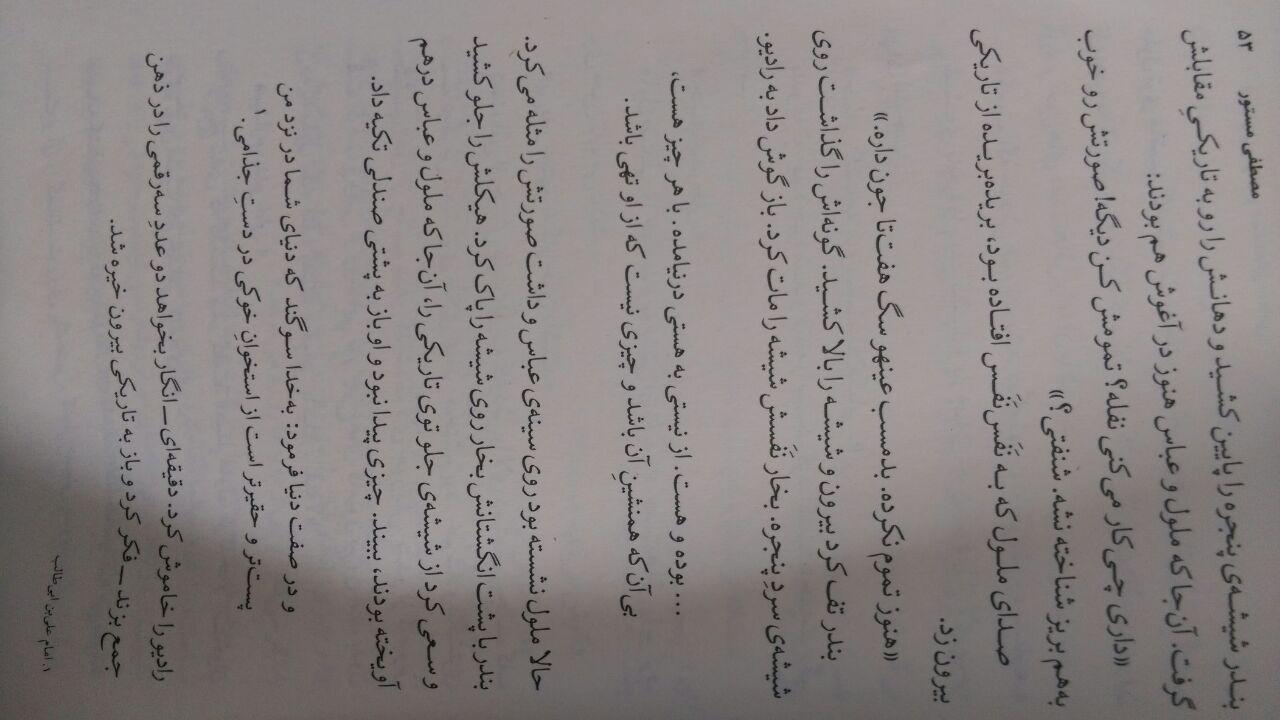 مصطفی مستور ۵۳
بندر شیشه‌ی پنجره را پایین کشید و دهانش را رو به تاریکیِ مقابلش
گرفت. آن‌جا که ملول و عباس هنوز در آغوش هم بودند:
«داری چی‌کار می‌کنی نفله؟ تمومش کن دیگه! صورتش رو خوب
به‌هم بریز شناخته نشه. شنفتی؟»
صدای ملول که به نَفَس نَفَس افتاده بود، بریده‌بریده از تاریکی
بیرون زد.
«هنوز تموم نکرده. بدمسب عینهو سگ هفت‌تا جون داره.»
بندر تف کرد بیرون و شیشه را بالا کشید. گونه‌اش را گذاشت روی
شیشه‌ی سردِ پنجره. بخار نَفَسش شیشه را مات کرد. باز گوش داد به رادیو.
... بوده و هست. از نیستی به هستی درنیامده. با هر چیز هست،
بی‌آن‌که همنشینِ آن باشد و چیزی نیست که از او تهی باشد.
حالا ملول نشسته بود روی سینه‌ی عباس و داشت صورتش را مثله می‌کرد.
بندر با پشت انگشتانش بخار روی شیشه را پاک کرد. هیکلش را جلو کشید
و سعی کرد از شیشه‌ی جلو توی تاریکی را، آن‌جا که ملول و عباس درهم
آویخته بودند، ببیند. چیزی پیدا نبود و او باز به پشتی صندلی تکیه داد.
و در صفت دنیا فرمود: به‌خدا سوگند که دنیای شما در نزد من
پست‌تر و حقیرتر است از استخوانِ خوکی در دستِ جذامی.۱
رادیو را خاموش کرد. دقیقه‌ای _انگار بخواهد دو عددِ سه‌رقمی را در ذهن
جمع بزند_ فکر کرد و باز به تاریکی بیرون خیره شد.
۱. امام علی‌بن ابی‌طالب